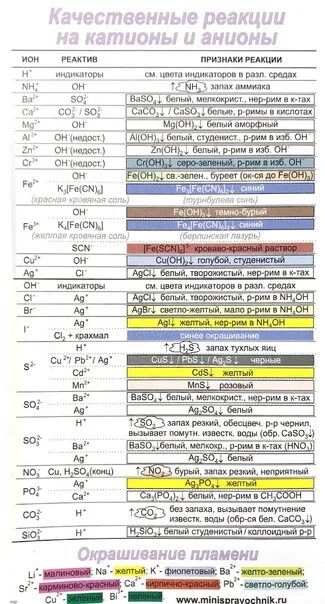 Качественные реакции
на катионы и анионы
ИОН РЕАКТИВ ПРИЗНАКИ РЕАКЦИИ
H⁺ индикаторы см. цвета индикаторов в разл. средах
NH₄⁺ OH⁻ ↑NH₃ запах аммиака
Ba²⁺ SO₄²⁻ BaSO₄↓ белый, мелкокрист., нер-рим в к-тах
Ca²⁺ CO₃²⁻ / SO₃²⁻ CaCO₃ ↓ / CaSO₃↓ белые, р-римы в кислотах
Mg²⁺ OH⁻ Mg(OH)₂↓ белый аморфный
Al³⁺ OH⁻(недост.) Al(OH)₃↓ белый, студенист., р-рим в изб. OH⁻
Zn²⁺ OH⁻(недост.) Zn(OH)₂↓ белый, р-рим в изб. OH⁻
Cr³⁺ OH⁻(недост.) Cr(OH)₃↓ серо-зеленый, р-рим в изб. OH⁻
Fe²⁺ OH⁻ Fe(OH)₂↓ св.-зелен., буреет (ок-ся до Fe(OH)₃)
K₃[Fe(CN)₆] Fe₃[Fe(CN)₆]₂↓ синий
(красная кровяная соль) (турнбулева синь)
Fe³⁺ OH⁻ Fe(OH)₃↓ темно-бурый
K₄[Fe(CN)₆] Fe₄[Fe(CN)₆]₃↓ синий
(желтая кровяная соль) (берлинская лазурь)
SCN⁻ [Fe(SCN)₆]³⁻ кроваво-красный раствор
Cu²⁺ OH⁻ Cu(OH)₂↓ голубой, студенистый
Ag⁺ Cl⁻ AgCl↓ белый, творожистый, нер-рим в к-тах
OH⁻ индикаторы см. цвета индикаторов в разл. средах
Cl⁻ Ag⁺ AgCl↓ белый, творожистый, р-рим в NH₄OH
Br⁻ Ag⁺ AgBr↓ светло-желтый, мало р-рим в NH₄OH
I⁻ Ag⁺ AgI↓ желтый, нер-рим в NH₄OH
Cl₂ + крахмал синее окрашивание
S²⁻ H⁺ ↑H₂S запах тухлых яиц
Cu²⁺/ Pb²⁺/ Ag⁺ CuS↓ / PbS↓ / Ag₂S↓ черные
Cd²⁺ CdS↓ желтый
Mn²⁺ MnS↓ розовый
SO₄²⁻ Ba²⁺ BaSO₄↓ белый, мелкокрист., нер-рим в к-тах
Ag⁺ Ag₂SO₄↓ белый
SO₃²⁻ H⁺ ↑SO₂ запах резкий, обесцвеч. р-р чернил,
вызывает помутн. известк. воды (обр. CaSO₃↓)
Ba²⁺ BaSO₃↓белый, мелкокр., р-рим в к-тах (HNO₃)
Ag⁺ Ag₂SO₃↓ белый
NO₃⁻ Cu, H₂SO₄(конц) ↑NO₂ бурый, запах резкий, неприятный
PO₄³⁻ Ag⁺ Ag₃PO₄↓ желтый
Ca²⁺ Ca₃(PO₄)₂↓ белый, нер-рим в CH₃COOH
CO₃²⁻ H⁺ ↑CO₂ без запаха, вызывает помутнение
известк. воды (обр-ся бел. CaCO₃↓)
SiO₃²⁻ H⁺ H₂SiO₃↓ белый студенистый / коллоидный р-р
Окрашивание пламени
Li⁺-малиновый; Na⁺-желтый; K⁺-фиолетовый; Ba²⁺-желто-зеленый;
Sr²⁺-карминово-красный; Ca²⁺-кирпично-красный; Pb²⁺-светло-голубой;
Cu²⁺-зеленый; Bi³⁺-зеленый
www.minispravochnik.ru